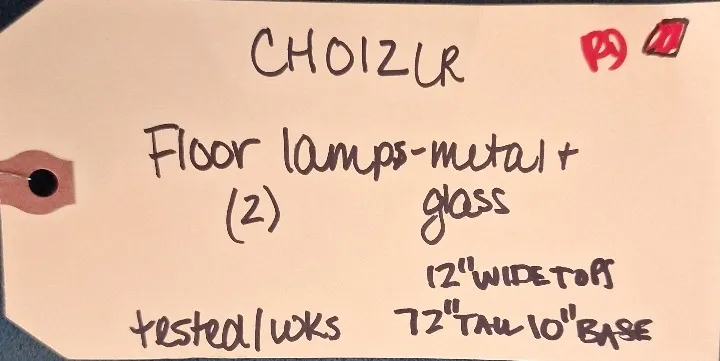 CHO12LR
Floor lamps-metal +
(2) glass
12" WIDE TOPS
tested/wks 72" TALL 10" BASE